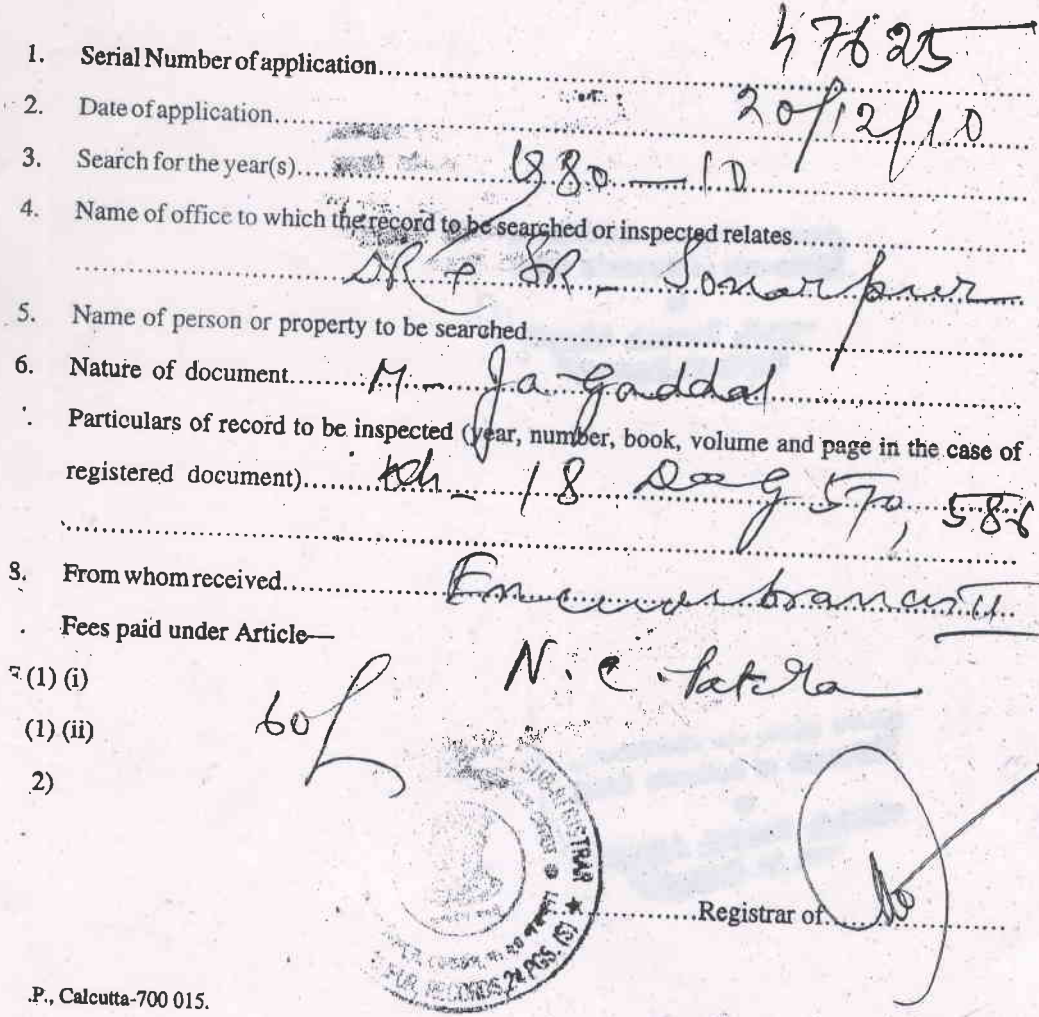 1. Serial Number of application.................... 47625
2. Date of application.................... 20/12/10
3. Search for the year(s).................... 1980 — 10
4. Name of office to which the record to be searched or inspected relates....................
DR & SR - Sonarpur
5. Name of person or property to be searched....................
6. Nature of document.................... M - Jagaddal
Particulars of record to be inspected (year, number, book, volume and page in the case of
registered document).................... kh - 18 Dag 570, 586
8. From whom received.................... Encumbrances
Fees paid under Article—
(1) (i) N. C. Patra
(1) (ii) 60/
2)
SUB-REGISTRAR
Registrar of
.P., Calcutta-700 015.